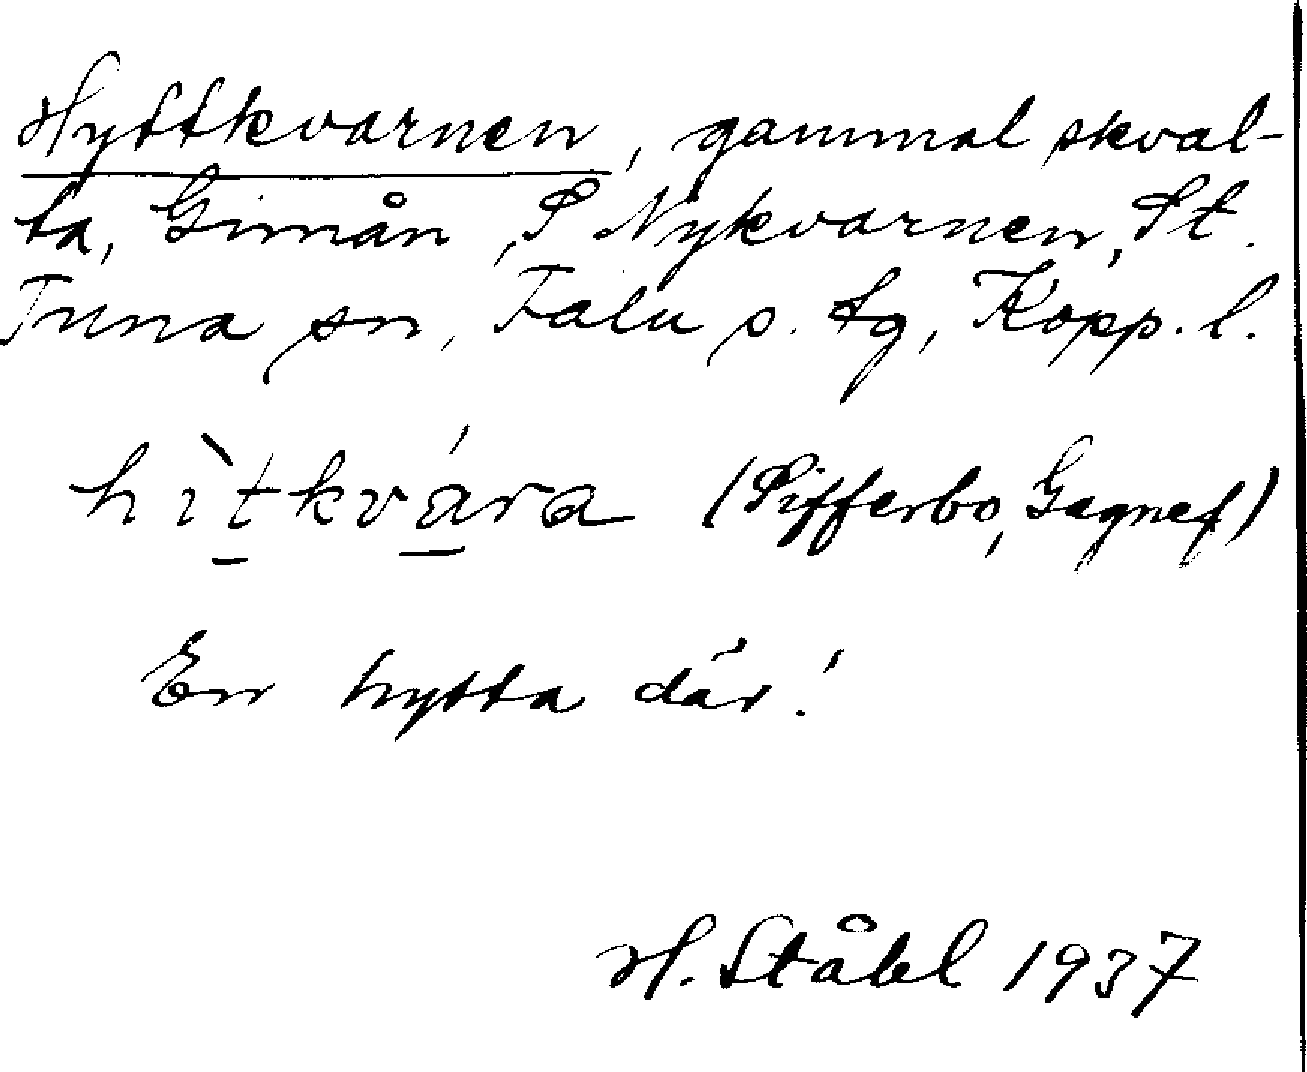 Hyttkvarnen, gammal skval-
ta, Gimån, S Nykvarnen, St.
Tuna sn, Falu s. tg, Kopp. l.
hìtkvára (Sifferbo, Gagnef)
En hytta där!
H. Ståhl 1937